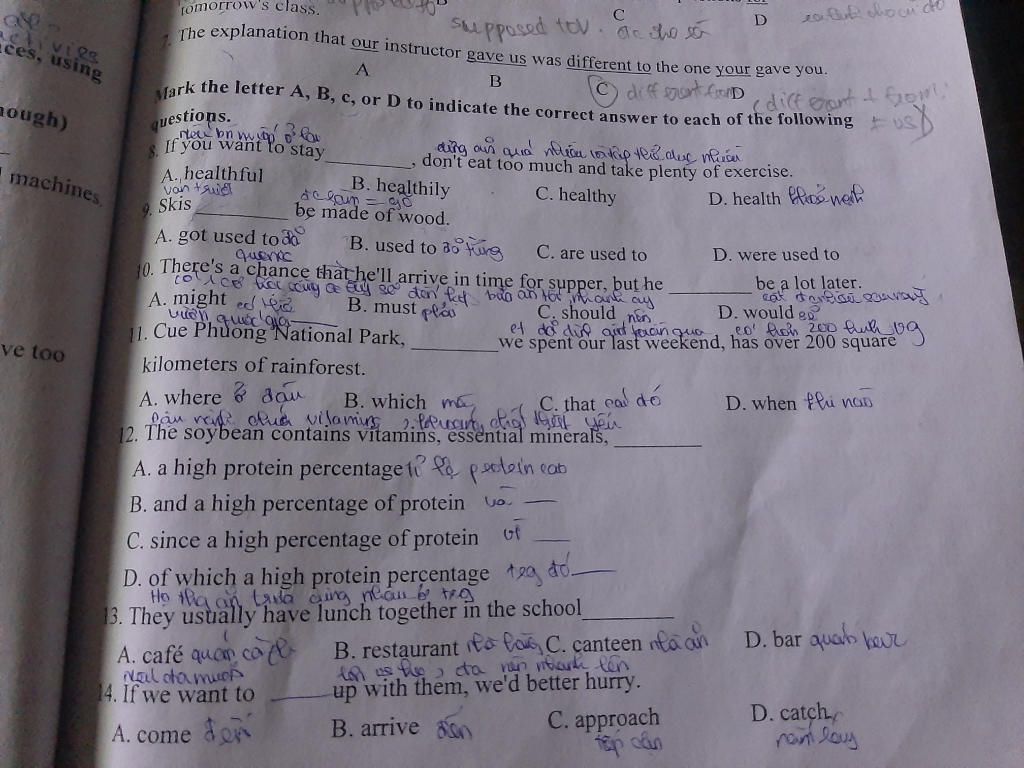 tomorrow's class.
C D
supposed to V.
7. The explanation that our instructor gave us was different to the one your gave you.
A B C different from D
(different + from
Mark the letter A, B, c, or D to indicate the correct answer to each of the following
+ us
questions.
8. If you want to stay_________, don't eat too much and take plenty of exercise.
A. healthful B. healthily C. healthy D. health khoẻ mạnh
ván trượt
9. Skis _________ be made of wood.
A. got used to B. used to đã từng C. are used to D. were used to
10. There's a chance that he'll arrive in time for supper, but he ________ be a lot later.
A. might có thể B. must phải C. should nên D. would sẽ
vườn quốc gia
11. Cue Phuong National Park, _________we spent our last weekend, has over 200 square
kilometers of rainforest.
A. where ở đâu B. which mà C. that cái đó D. when khi nào
12. The soybean contains vitamins, essential minerals, _________
A. a high protein percentage tỉ lệ protein cao
B. and a high percentage of protein và
C. since a high percentage of protein vì
D. of which a high protein percentage trg đó
Họ thg ăn trưa cùng nhau ở trg
13. They usually have lunch together in the school_________
A. café quán cà fê B. restaurant nhà hàng C. canteen nhà ăn D. bar quán bar
14. If we want to ______ up with them, we'd better hurry.
A. come đến B. arrive đến C. approach D. catch
tiếp cận nắm lấy
ces, using
ough)
machines.
ve too